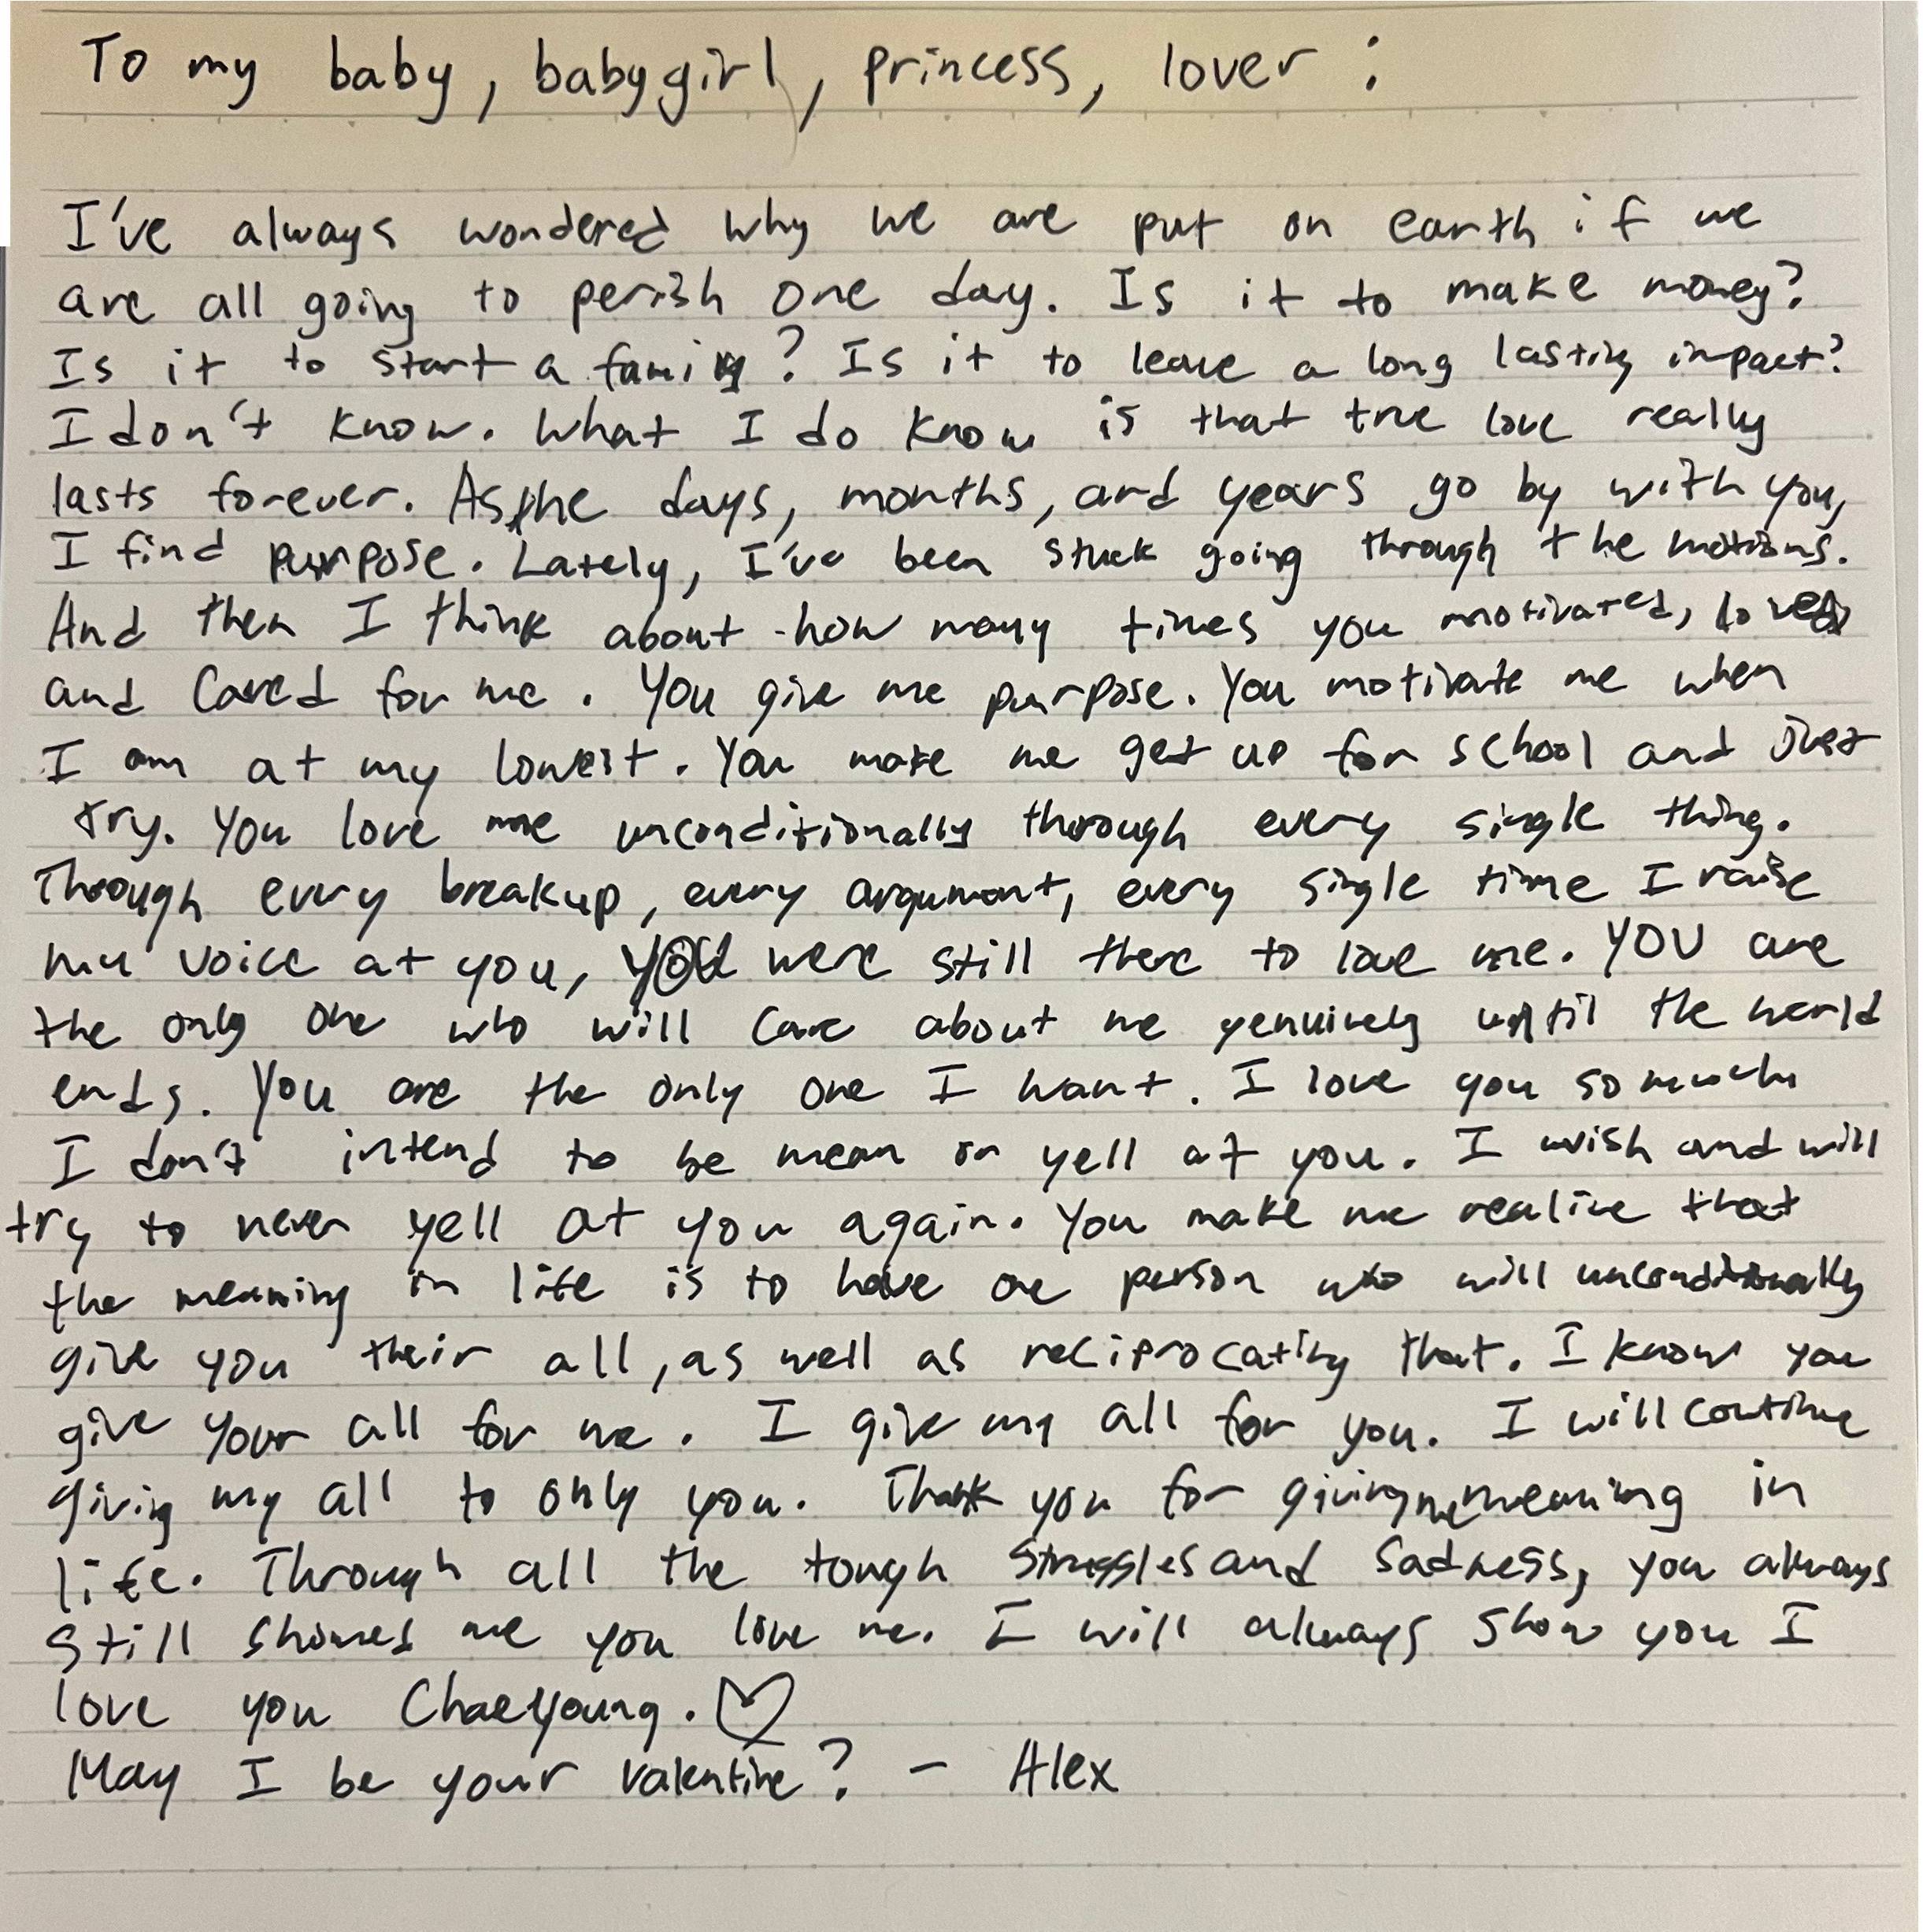 To my baby, babygirl, princess, lover :
I've always wondered why we are put on earth if we
are all going to perish one day. Is it to make money?
Is it to start a family? Is it to leave a long lasting impact?
I don't know. What I do know is that true love really
lasts forever. As the days, months, and years go by with you,
I find purpose. Lately, I've been stuck going through the motions.
And then I think about how many times you motivated, loved
and cared for me. You give me purpose. You motivate me when
I am at my lowest. You make me get up for school and just
try. You love me unconditionally through every single thing.
Through every breakup, every argument, every single time I raise
my voice at you, you were still there to love me. YOU are
the only one who will care about me genuinely until the world
ends. You are the only one I want. I love you so much
I don't intend to be mean or yell at you. I wish and will
try to never yell at you again. You make me realize that
the meaning in life is to have one person who will unconditionally
give you their all, as well as reciprocating that. I know you
give your all for me. I give my all for you. I will continue
giving my all to only you. Thank you for giving me meaning in
life. Through all the tough struggles and sadness, you always
still showed me you love me. I will always show you I
love you Chaeyoung. ♡
May I be your valentine? - Alex